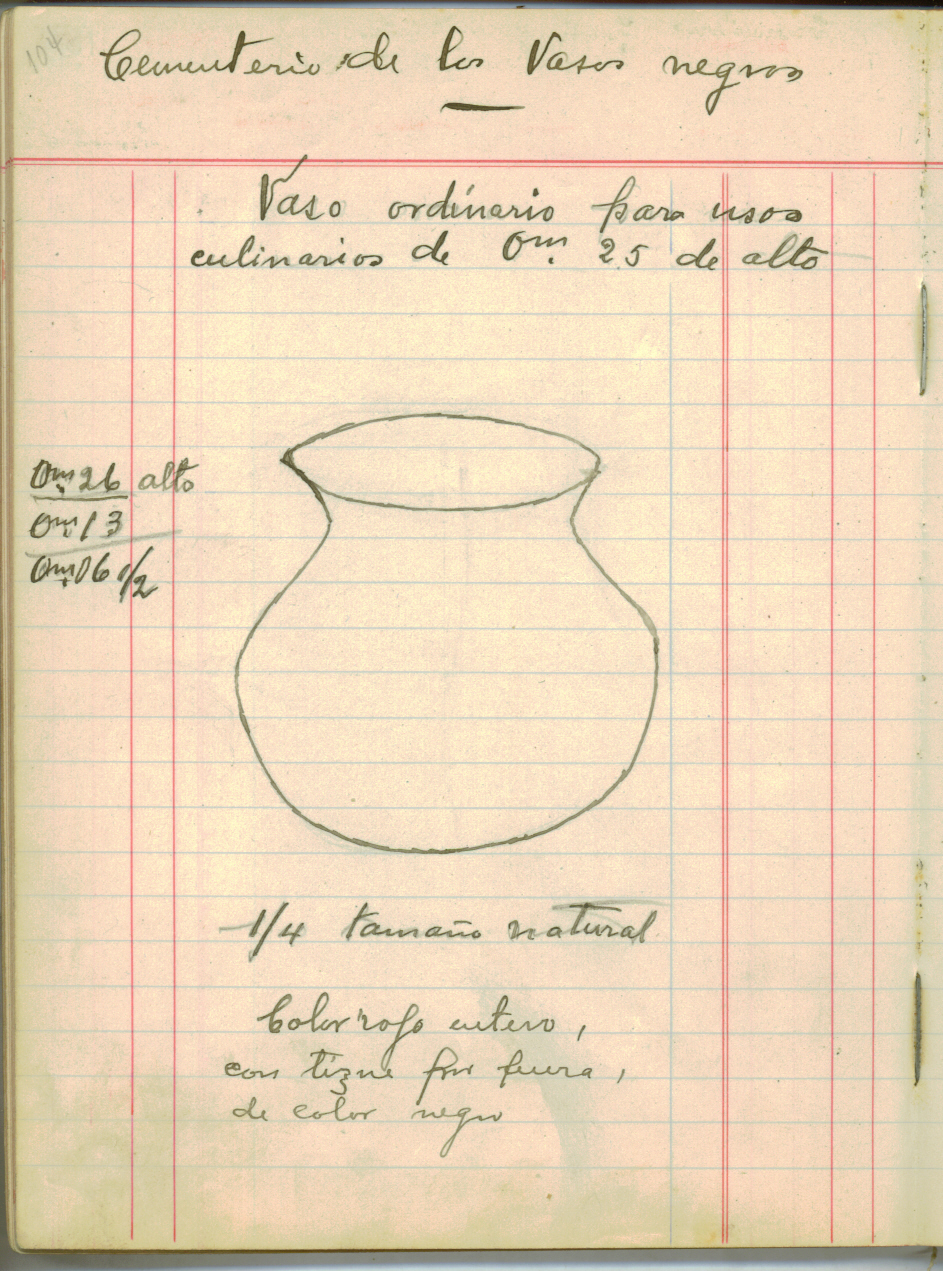 104
Cementerio de los Vasos negros
Vaso ordinario para usos
culinarios de 0m. 25 de alto
0m. 26 alto
0m. 13
0m. 06 1/2
1/4 tamaño natural
Color rojo entero,
con tizne por fuera,
de color negro